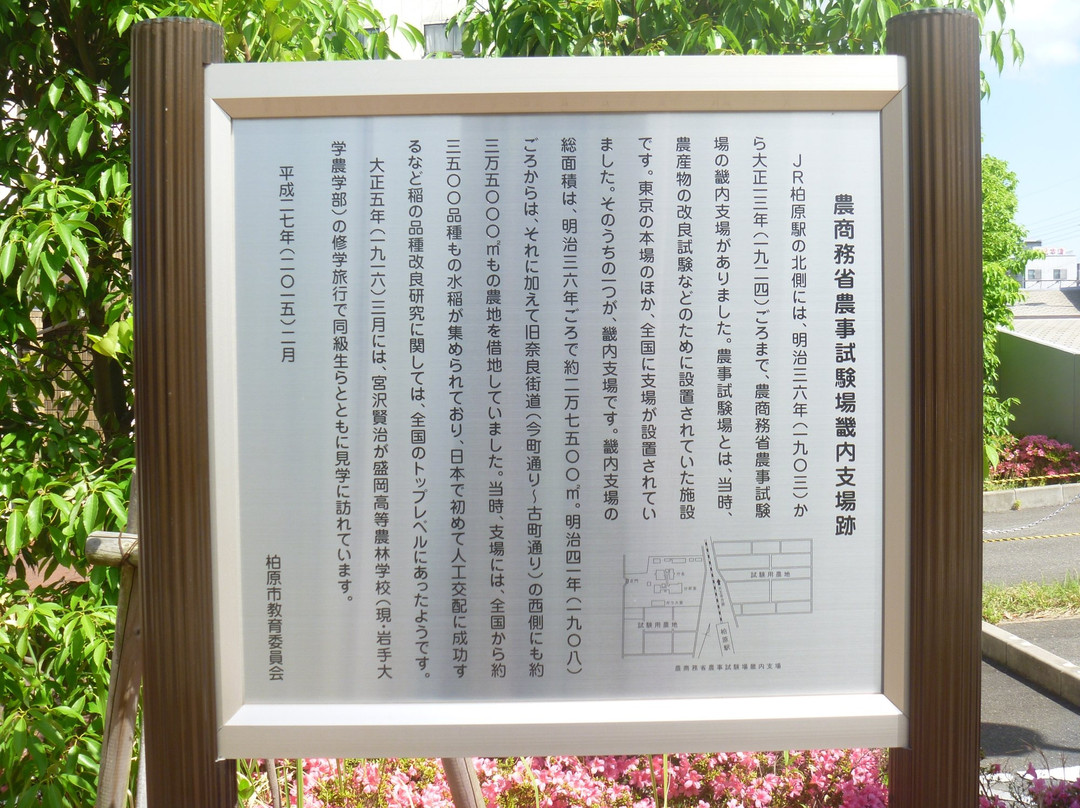 農商務省農事試験場畿内支場跡
ＪＲ柏原駅の北側には、明治三六年（一九〇三）か
ら大正一三年（一九二四）ごろまで、農商務省農事試験
場の畿内支場がありました。農事試験場とは、当時、
農産物の改良試験などのために設置されていた施設
です。東京の本場のほか、全国に支場が設置されてい
ました。そのうちの一つが、畿内支場です。畿内支場の
総面積は、明治三六年ごろで約二万七五〇〇㎡。明治四一年（一九〇八）
ごろからは、それに加えて旧奈良街道（今町通り～古町通り）の西側にも約
三万五〇〇〇㎡もの農地を借地していました。当時、支場には、全国から約
三五〇〇品種もの水稲が集められており、日本で初めて人工交配に成功す
るなど稲の品種改良研究に関しては、全国のトップレベルにあったようです。
大正五年（一九一六）三月には、宮沢賢治が盛岡高等農林学校（現・岩手大
学農学部）の修学旅行で同級生らとともに見学に訪れています。
平成二七年（二〇一五）二月
柏原市教育委員会
試験用農地
試験用農地
柏原駅
農商務省農事試験場畿内支場